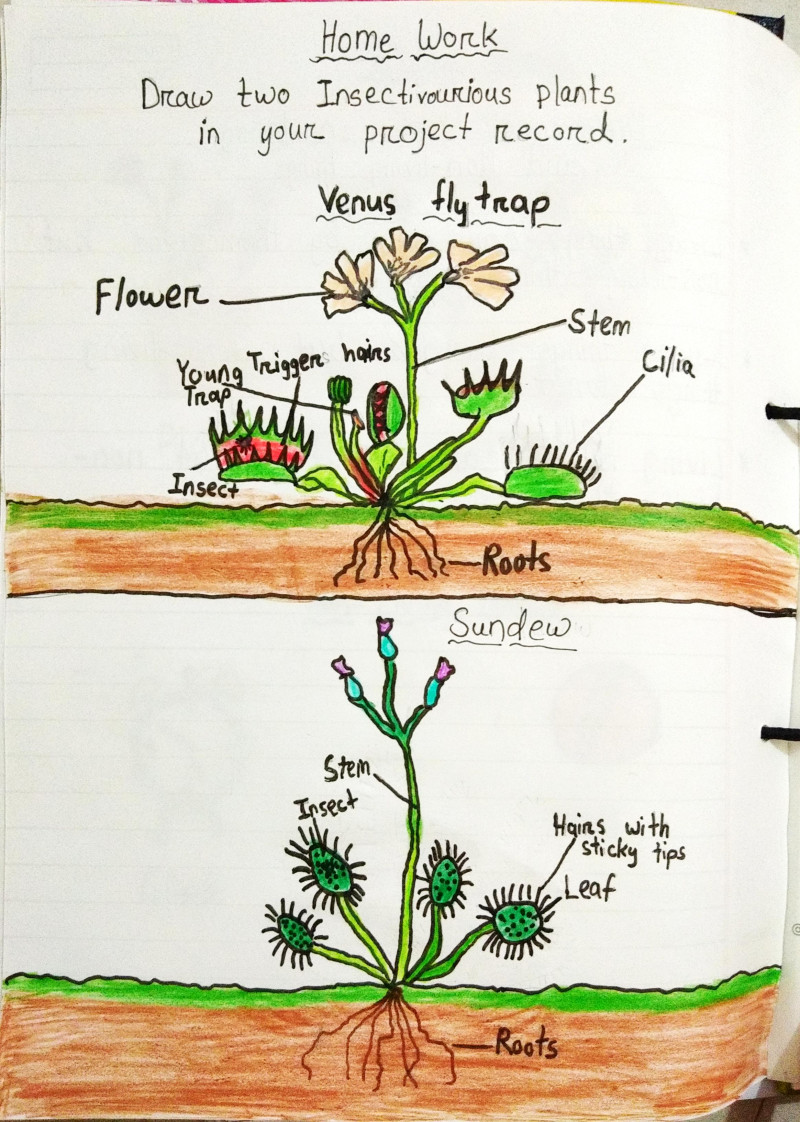 Home Work
Draw two Insectivourious plants
in your project record.
Venus fly trap
Flower
Stem
Young
Trap
Triggers hairs
Cilia
Insect
Roots
Sundew
Stem
Insect
Hairs with
sticky tips
Leaf
Roots